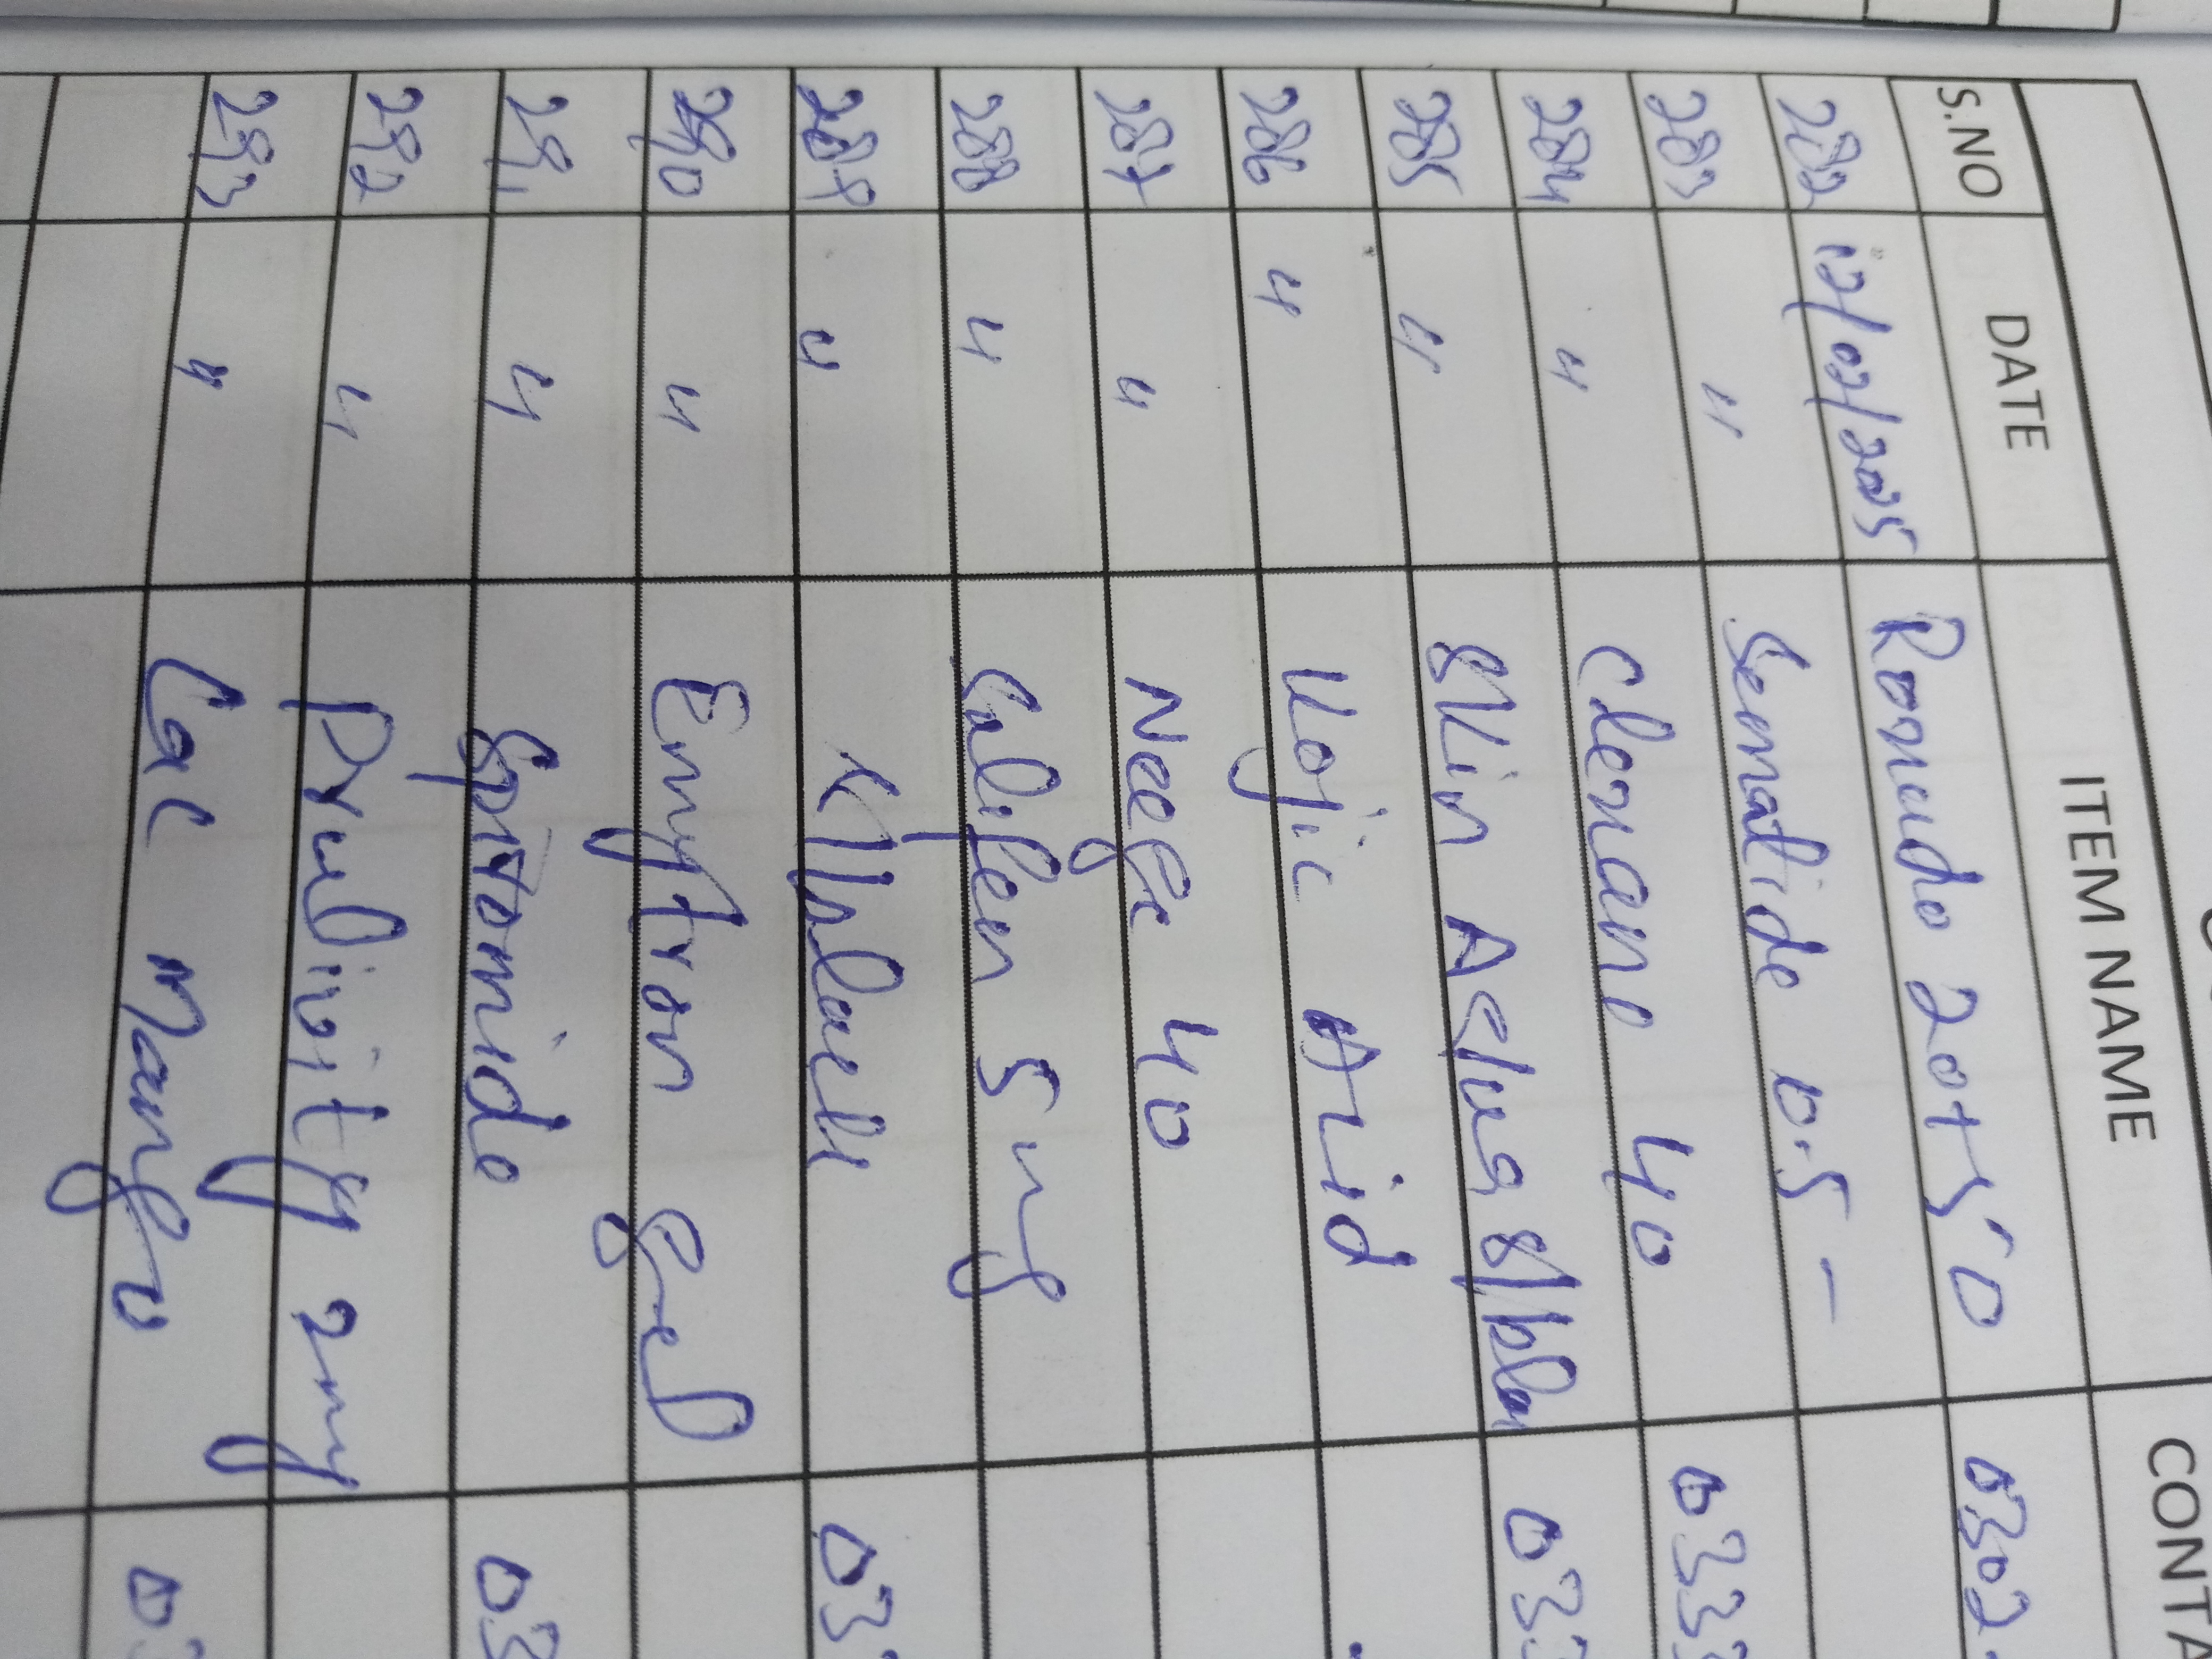 S.NO DATE ITEM NAME CONTA
282 12/02/2025 Ronudo 20+50 0302
283 " Sematide 0.5 -
284 " Clenano 40 0333
285 " Skin Aclus s/blo 033
286 " Kojic Acid
287 " Neege 40
288 " Califen 5 mg
289 " Klblack 03
290 " Emytron gel
291 " Spiromide 03
292 " Prulivity 2mg
293 " Cac Mango 03